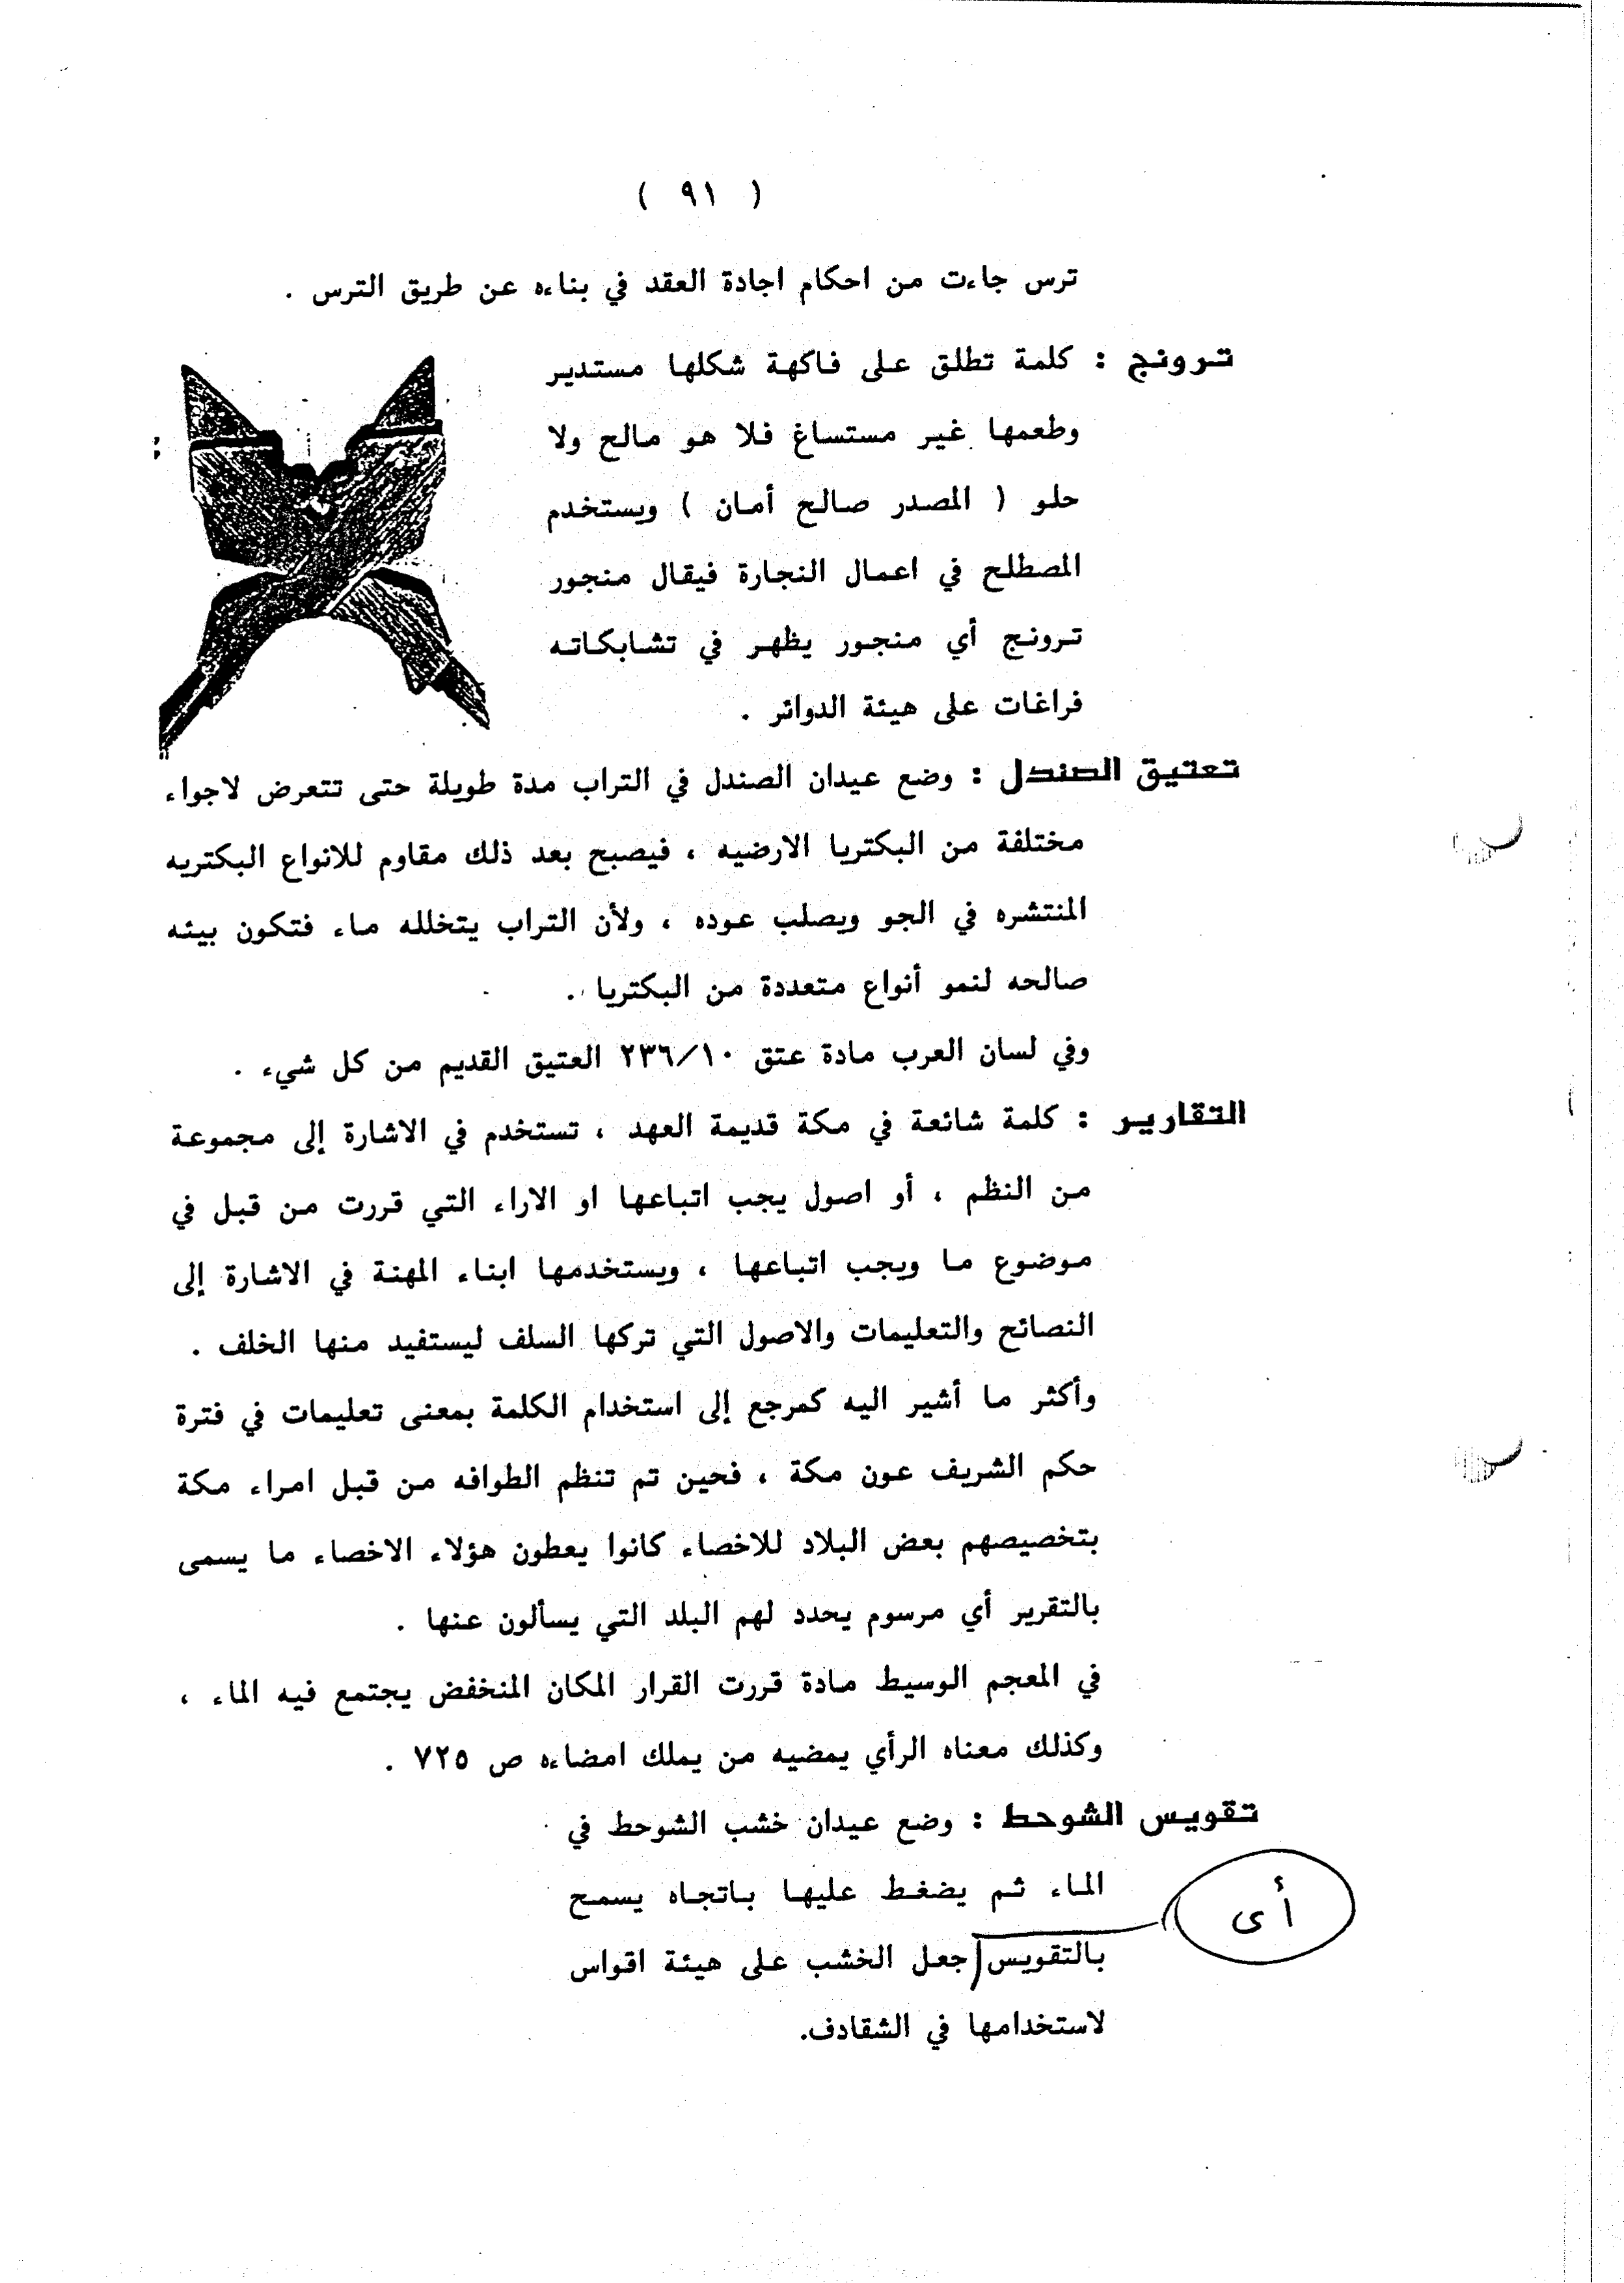 ( ٩١ )
ترس جاءت من احكام اجادة العقد في بناءه عن طريق الترس .
ترونج : كلمة تطلق على فاكهة شكلها مستدير
وطعمها غير مستساغ فلا هو مالح ولا
حلو ( المصدر صالح أمان ) ويستخدم
المصطلح في اعمال النجارة فيقال منجور
ترونج أي منجور يظهر في تشابكاته
فراغات على هيئة الدوائر .
تعتيق الصندل : وضع عيدان الصندل في التراب مدة طويلة حتى تتعرض لاجواء
مختلفة من البكتريا الارضيه ، فيصبح بعد ذلك مقاوم للانواع البكتريه
المنتشره في الجو ويصلب عوده ، ولأن التراب يتخلله ماء فتكون بيئه
صالحه لنمو أنواع متعددة من البكتريا .
وفي لسان العرب مادة عتق ٢٣٦/١٠ العتيق القديم من كل شيء .
التقارير : كلمة شائعة في مكة قديمة العهد ، تستخدم في الاشارة إلى مجموعة
من النظم ، أو اصول يجب اتباعها او الاراء التي قررت من قبل في
موضوع ما ويجب اتباعها ، ويستخدمها ابناء المهنة في الاشارة إلى
النصائح والتعليمات والاصول التي تركها السلف ليستفيد منها الخلف .
وأكثر ما أشير اليه كمرجع إلى استخدام الكلمة بمعنى تعليمات في فترة
حكم الشريف عون مكة ، فحين تم تنظم الطوافه من قبل امراء مكة
بتخصيصهم بعض البلاد للاخصاء كانوا يعطون هؤلاء الاخصاء ما يسمى
بالتقرير أي مرسوم يحدد لهم البلد التي يسألون عنها .
في المعجم الوسيط مادة قررت القرار المكان المنخفض يجتمع فيه الماء ،
وكذلك معناه الرأي يمضيه من يملك امضاءه ص ٧٢٥ .
تقويس الشوحط : وضع عيدان خشب الشوحط في
الماء ثم يضغط عليها باتجاه يسمح
أى
بالتقويس جعل الخشب على هيئة اقواس
لاستخدامها في الشقادف.